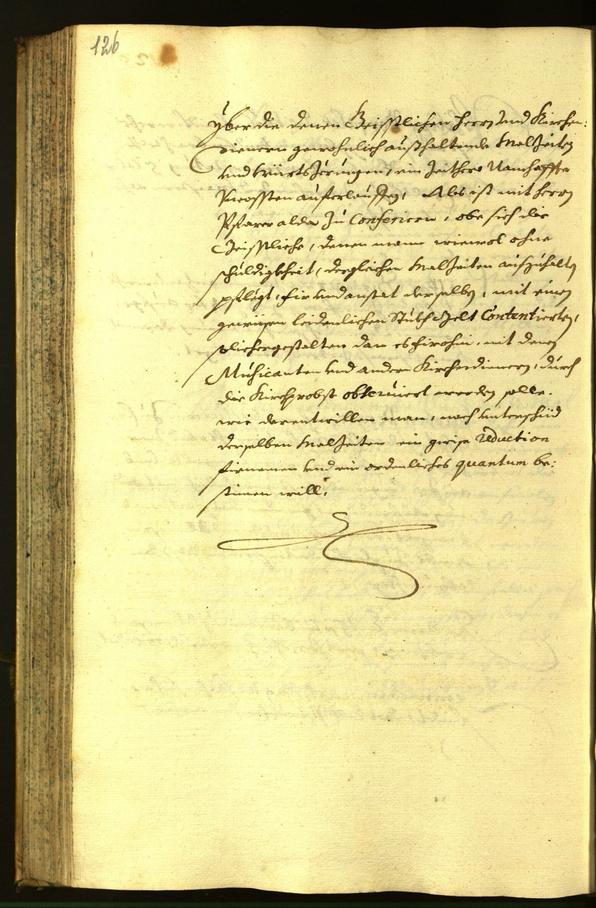 126
Yber die denen Geistlichen herrn und Kirchen:
dienern gewohnlich aushaltende Malzeiten
und Würtszörungen, ein Zeithero Namhaffte
Uncossten aufferlauffen, Als ist mit herrn
Pfarrer alda zu Conferiern, obe sich die
Geistliche, denen mann wiewol ohne
schuldigkheit, dergleichen Malzeiten auszuhalten
pflegt, für und anstat derselben, mit einem
gewisen leidenlichen Stuckh Gelt Contentierten,
solichergestalten dan es hirohin, mit denen
Musicanten und andern Kirchendienern, durch
die Kirchprobst observiert werden solle.
wie derentwillen man, nach unterschid
derselben Malzeiten ein gwise reduction
firnemen und ein ordenliches quantum be:
stimen will.